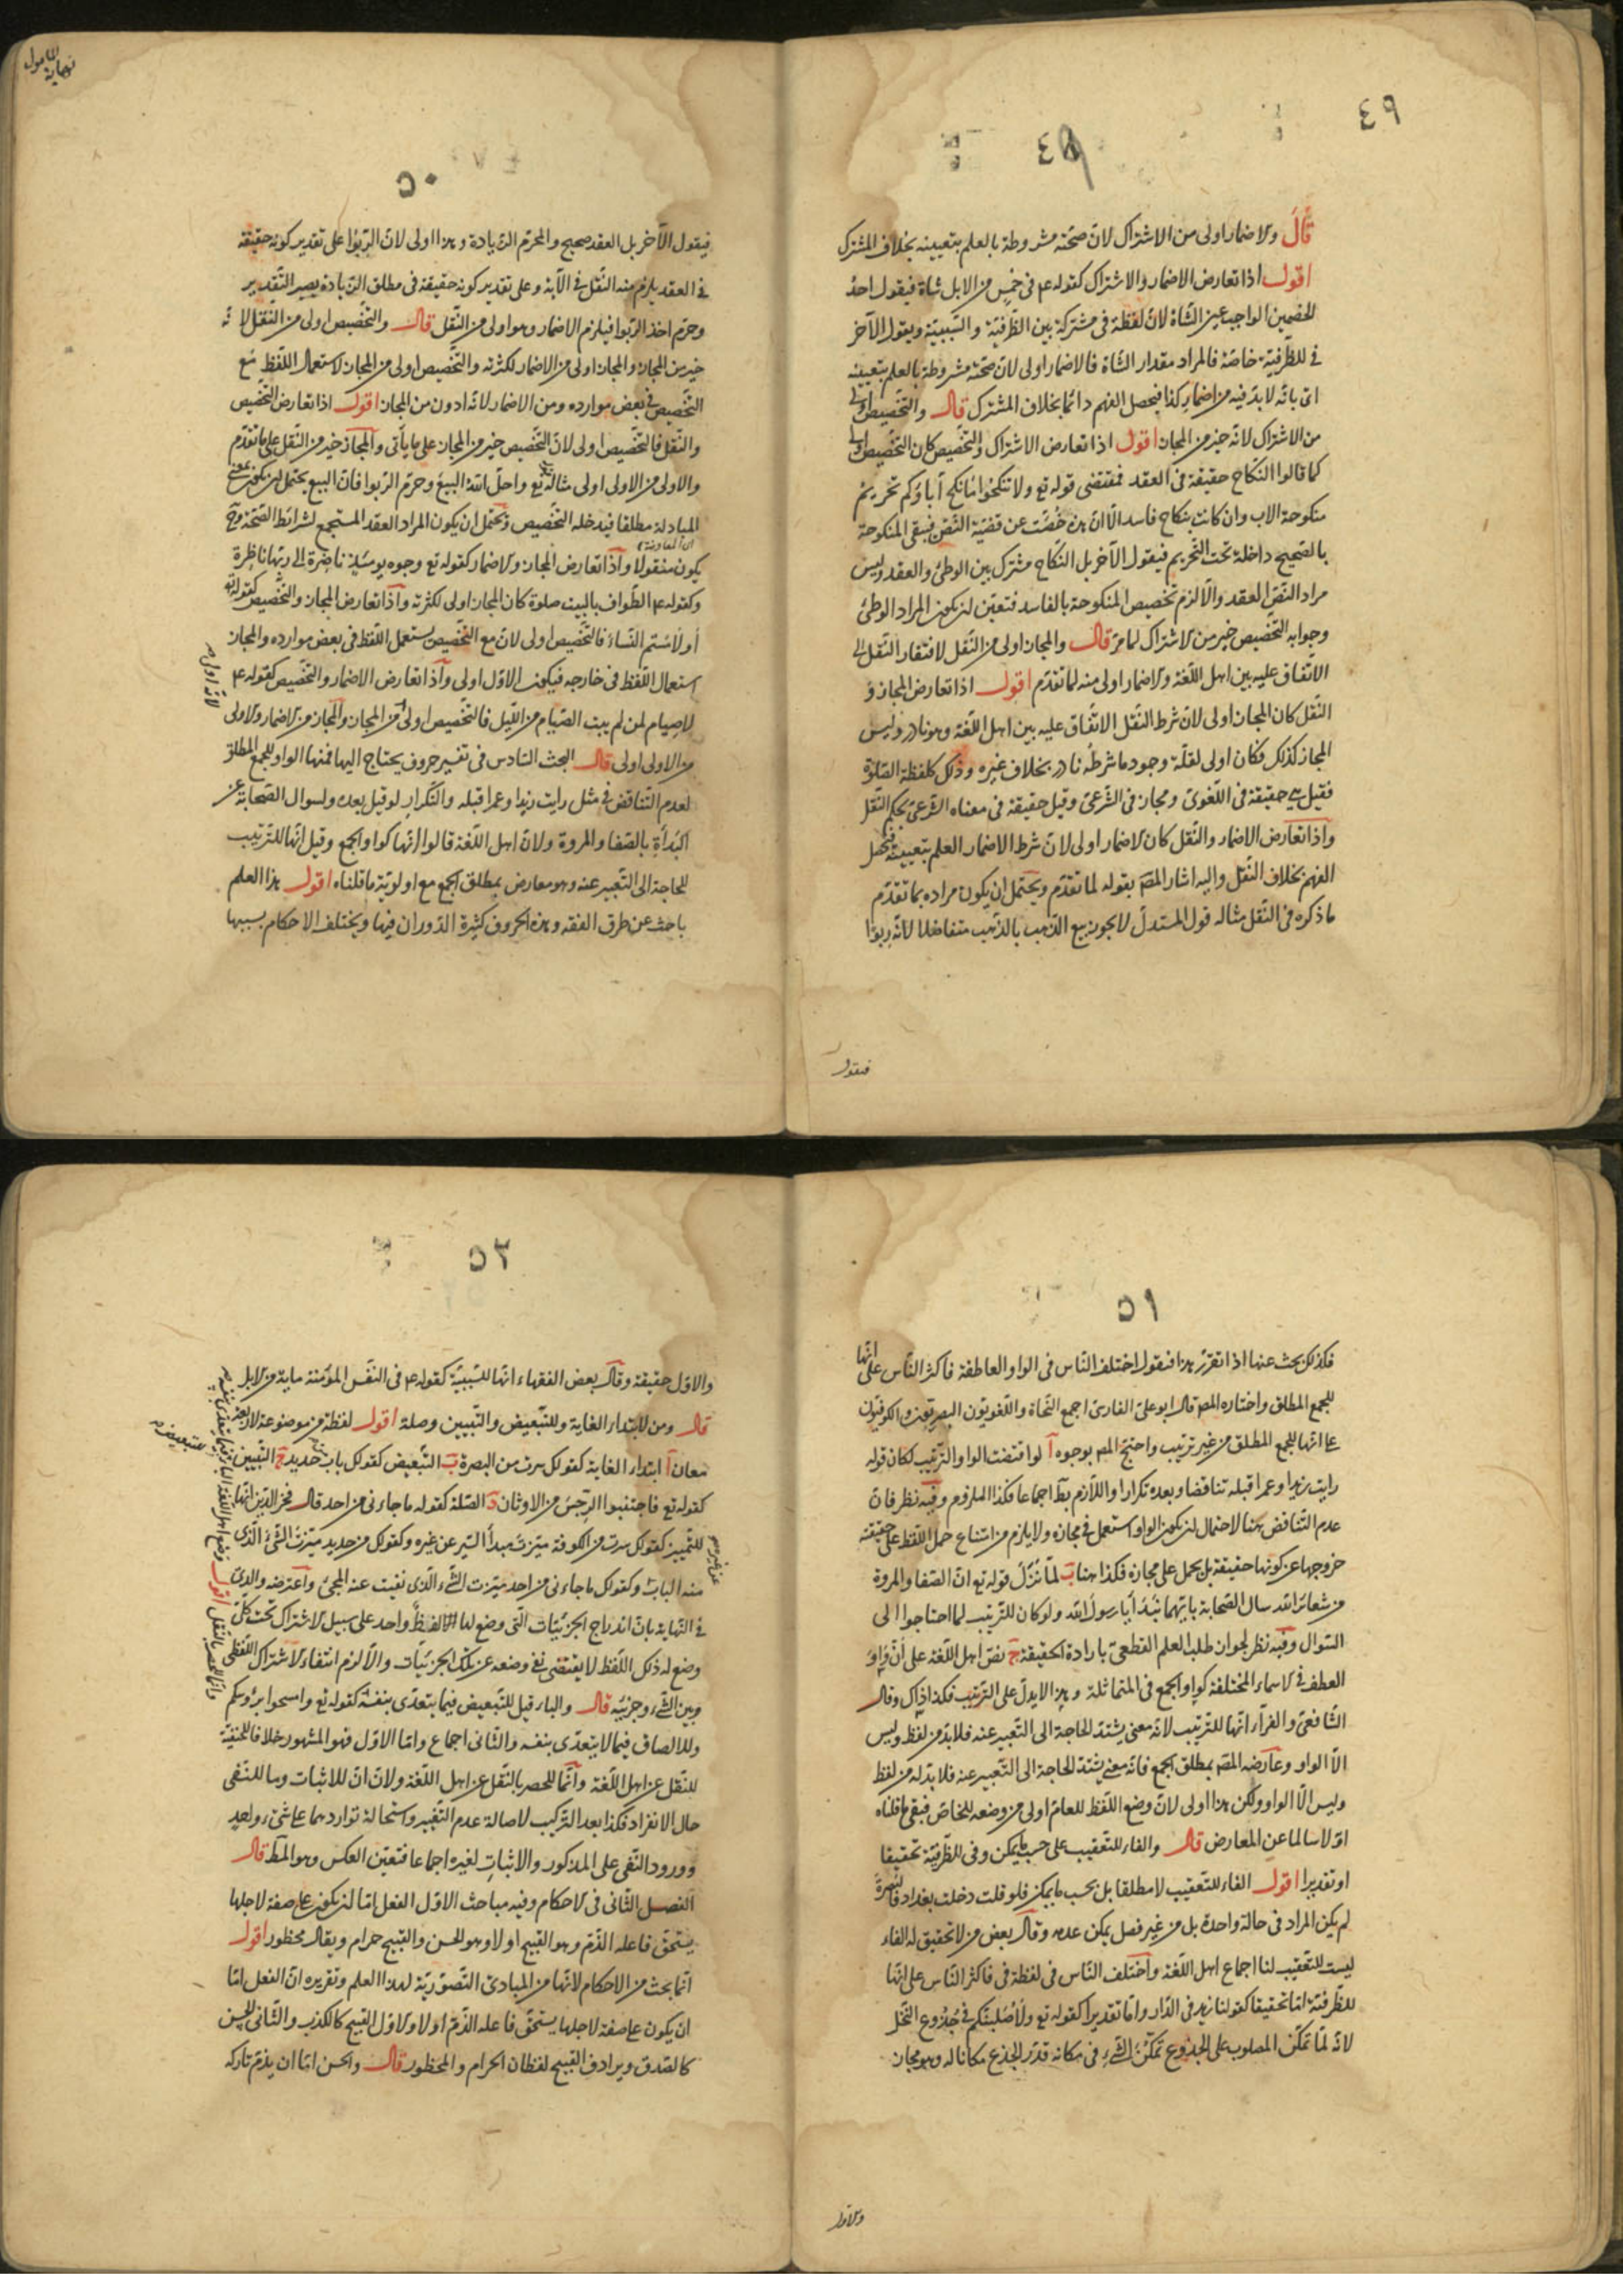 ٤٩
٤٩
قال والاضمار اولى من الاشتراك لان صحته مشروطة بالعلم بتعيينه بخلاف المشترك
اقول اذا تعارض الاضمار والاشتراك كقوله ع في خمس من الابل شاة فيقول احد
الخصمين الواجب عين الشاة لان لفظة في مشتركة بين الظرفية والسببية ويقول الآخر
في للظرفية خاصة فالمراد مقدار الشاة فالاضمار اولى لان صحته مشروطة بالعلم بتعيينه
اى بانه لابد فيه من اضمار كذا فيحصل الفهم دائما بخلاف المشترك قال والتخصيص اولى
من الاشتراك لانه خير من المجاز اقول اذا تعارض الاشتراك والتخصيص كان التخصيص اولى
كما قالوا النكاح حقيقة في العقد فمقتضى قوله تع ولا تنكحوا ما نكح آباؤكم تحريم
منكوحة الاب وان كانت بنكاح فاسد الا ان هذه خصت عن قضية النص فيبقى المنكوحة
بالصحيح داخلة تحت التحريم فيقول الآخر بل النكاح مشترك بين الوطئ والعقد وليس
مراد النص العقد والا لزم تخصيص المنكوحة بالفاسد فتعين ان يكون المراد الوطئ
وجوابه التخصيص خير من الاشتراك لما مر قال والمجاز اولى من النقل لافتقار النقل الى
الاتفاق عليه بين اهل اللغة والاضمار اولى منه لما تقدم اقول اذا تعارض المجاز و
النقل كان المجاز اولى لان شرط النقل الاتفاق عليه بين اهل اللغة وهو نادر وليس
المجاز كذلك فكان اولى لقلة وجود ما شرطه نادر بخلاف غيره وذلك كلفظة الصلوة
فقيل هي حقيقة في اللغوى ومجاز في الشرعى وقيل حقيقة في معناه الشرعى بحكم النقل
واذا تعارض الاضمار والنقل كان الاضمار اولى لان شرط الاضمار العلم بتعيينه فيحصل
الفهم بخلاف النقل واليه اشار المصـ بقوله لما تقدم ويحتمل ان يكون مراده بما تقدم
ما ذكره في النقل مثاله قول المستدل لا يجوز بيع الذهب بالذهب متفاضلا لانه ربوا
فيقول
نهاية المامول
٥٠
فيقول الآخر بل العقد صحيح والمحرم الزيادة وهذا اولى لان الربوا على تقدير كونه حقيقة
في العقد يلزم منه النقل في الآية وعلى تقدير كونه حقيقة في مطلق الزيادة يصير التقدير
وحرم اخذ الربوا فيلزم الاضمار وهو اولى من النقل قال والتخصيص اولى من النقل لانه
خير من المجاز والمجاز اولى من الاضمار لكثرته والتخصيص اولى من المجاز لاستعمال اللفظ مع
التخصيص في بعض موارده ومن الاضمار لانه ادون من المجاز اقول اذا تعارض التخصيص
والنقل فالتخصيص اولى لان التخصيص خير من المجاز على ما ياتى والمجاز خير من النقل على ما تقدم
والاولى من الاولى اولى مثاله قوله تع واحل الله البيع وحرم الربوا فان البيع يحتمل ان يكون بمعنى
المبادلة مطلقا فيدخله التخصيص ويحتمل ان يكون المراد العقد المستجمع لشرائط الصحة وح
يكون منقولا واذا تعارض المجاز والاضمار كقوله تع وجوه يومئذ ناضرة الى ربها ناظرة
وكقوله ع الطواف بالبيت صلوة كان المجاز اولى لكثرته واذا تعارض المجاز والتخصيص كقوله تع
أو لامستم النساء فالتخصيص اولى لان مع التخصيص يستعمل اللفظ في بعض موارده والمجاز
استعمال اللفظ في خارجه فيكون الاول اولى واذا تعارض الاضمار والتخصيص كقوله ع
لا صيام لمن لم يبت الصيام من الليل فالتخصيص اولى من المجاز والمجاز من الاضمار والاولى
من الاولى اولى قال البحث السادس في تفسير حروف يحتاج اليها فمنها الواو للجمع المطلق
لعدم التناقض في مثل رايت زيدا وعمرا قبله والتكرار لو قيل بعده ولسوال الصحابة عن
البدأة بالصفا والمروة ولان اهل اللغة قالوا انها كواو الجمع وقيل انها للترتيب
للحاجة الى التعبير عنه وهو معارض بمطلق الجمع مع اولوية ما قلناه اقول هذا العلم
باحث عن طرق الفقه وهذه الحروف كثيرة الدوران فيها ويختلف الاحكام بسببها
٥١
فكذلك بحث عنها اذا تقرر هذا فنقول اختلف الناس في الواو العاطفة فاكثر الناس على انها
للجمع المطلق واختاره المصـ قال ابو على الفارسى اجمع النحاة واللغويون البصريون والكوفيون
على انها للجمع المطلق من غير ترتيب واحتج المصـ بوجوه آ لو اقتضت الواو الترتيب لكان قوله
رايت زيدا وعمرا قبله تناقضا وبعده تكرارا واللازم بط اجماعا فكذا الملزوم وفيه نظر فان
عدم التناقض هنا لاحتمال ان يكون الواو استعمل في مجازه ولا يلزم من امتناع حمل اللفظ على حقيقته
خروجها عن كونها حقيقة بل يحمل على مجازه فكذا هنا ب لما نزل قوله تع ان الصفا والمروة
من شعائر الله سال الصحابة بايهما نبدأ يا رسول الله ولو كان للترتيب لما احتاجوا الى
السوال وفيه نظر لجواز طلب العلم القطعى بارادة الحقيقة ج نص اهل اللغة على ان واو
العطف في الاسماء المختلفة كواو الجمع في المتماثلة وهذا لا يدل على الترتيب فكذا ذاك وقال
الشافعى والفراء انها للترتيب لانه معنى يشتد الحاجة الى التعبير عنه فلا بد من لفظ وليس
الا الواو وعارضه المصـ بمطلق الجمع فانه معنى يشتد الحاجة الى التعبير عنه فلا بد له من لفظ
وليس الا الواو ولكن هذا اولى لان وضع اللفظ للعام اولى من وضعه للخاص فبقى ما قلناه
اولا سالما عن المعارض قال والفاء للتعقيب على حسب ما يمكن وفى للظرفية تحقيقا
او تقديرا اقول الفاء للتعقيب لا مطلقا بل بحسب ما يمكن فلو قلت دخلت بغداد فالبصرة
لم يكن المراد في حالة واحدة بل من غير فصل يمكن عدمه وقال بعض من لا تحقيق له الفاء
ليست للتعقيب لنا اجماع اهل اللغة واختلف الناس في لفظة في فاكثر الناس على انها
للظرفية اما تحقيقا كقولنا زيد في الدار واما تقديرا كقوله تع ولأصلبنكم في جذوع النخل
لانه لما تمكن المصلوب على الجذوع تمكن الشئ في مكانه قدر الجذع مكانا له وهو مجاز
والاول
٥٢
والاول حقيقة وقال بعض الفقهاء انها للسببية كقوله ع في النفس المؤمنة ماية من الابل
قال ومن لابتداء الغاية وللتبعيض والتبيين وصلة اقول لفظة من موضوعة لاربعة
معان آ ابتداء الغاية كقولك سرت من البصرة ب التبعيض كقولك باب من حديد ج التبيين
كقوله تع فاجتنبوا الرجس من الاوثان د الصلة كقوله ما جاءنى من احد قال فخر الدين انها
للتمييز كقولك سرت من الكوفة ميزت مبدأ السير عن غيره وكقولك من حديد ميزت الشئ الذى
منه الباب وكقولك ما جاءنى من احد ميزت الشئ الذى نفيت عنه المجئ واعترضه والدى
في النهاية بان اندراج الجزئيات التى وضع لها اللفظ واحد على سبيل الاشتراك تحت كلى
وضع له ذلك اللفظ لا يقتضى نفى وضعه عن تلك الجزئيات والا لزم انتفاء الاشتراك اللفظى
وبين الشئ وجزئيه قال والباء قيل للتبعيض فيما يتعدى بنفسه كقوله تع وامسحوا برؤسكم
وللالصاق فيما لا يتعدى بنفسه والثانى اجماع واما الاول فهو المشهور خلافا للحنفية
للنقل عن اهل اللغة وانما للحصر بالنقل عن اهل اللغة ولان ان للاثبات وما للنفى
حال الانفراد فكذا بعد التركيب لاصالة عدم التغيير واستحالة تواردهما على شئ واحد
وورود النفى على المذكور والاثبات لغيره اجماعا فتعين العكس وهو المط قال
الفصل الثانى في الاحكام وفيه مباحث الاول الفعل اما ان يكون على صفة لاجلها
يستحق فاعله الذم وهو القبيح او لا وهو الحسن والقبيح حرام ويقال محظور اقول
انما بحث عن الاحكام لانها من المبادئ التصورية لهذا العلم وتقريره ان الفعل اما
ان يكون على صفة لاجلها يستحق فاعله الذم او لا والاول القبيح كالكذب والثانى الحسن
كالصدق ويرادف القبيح لفظان الحرام والمحظور قال والحسن اما ان يذم تاركه